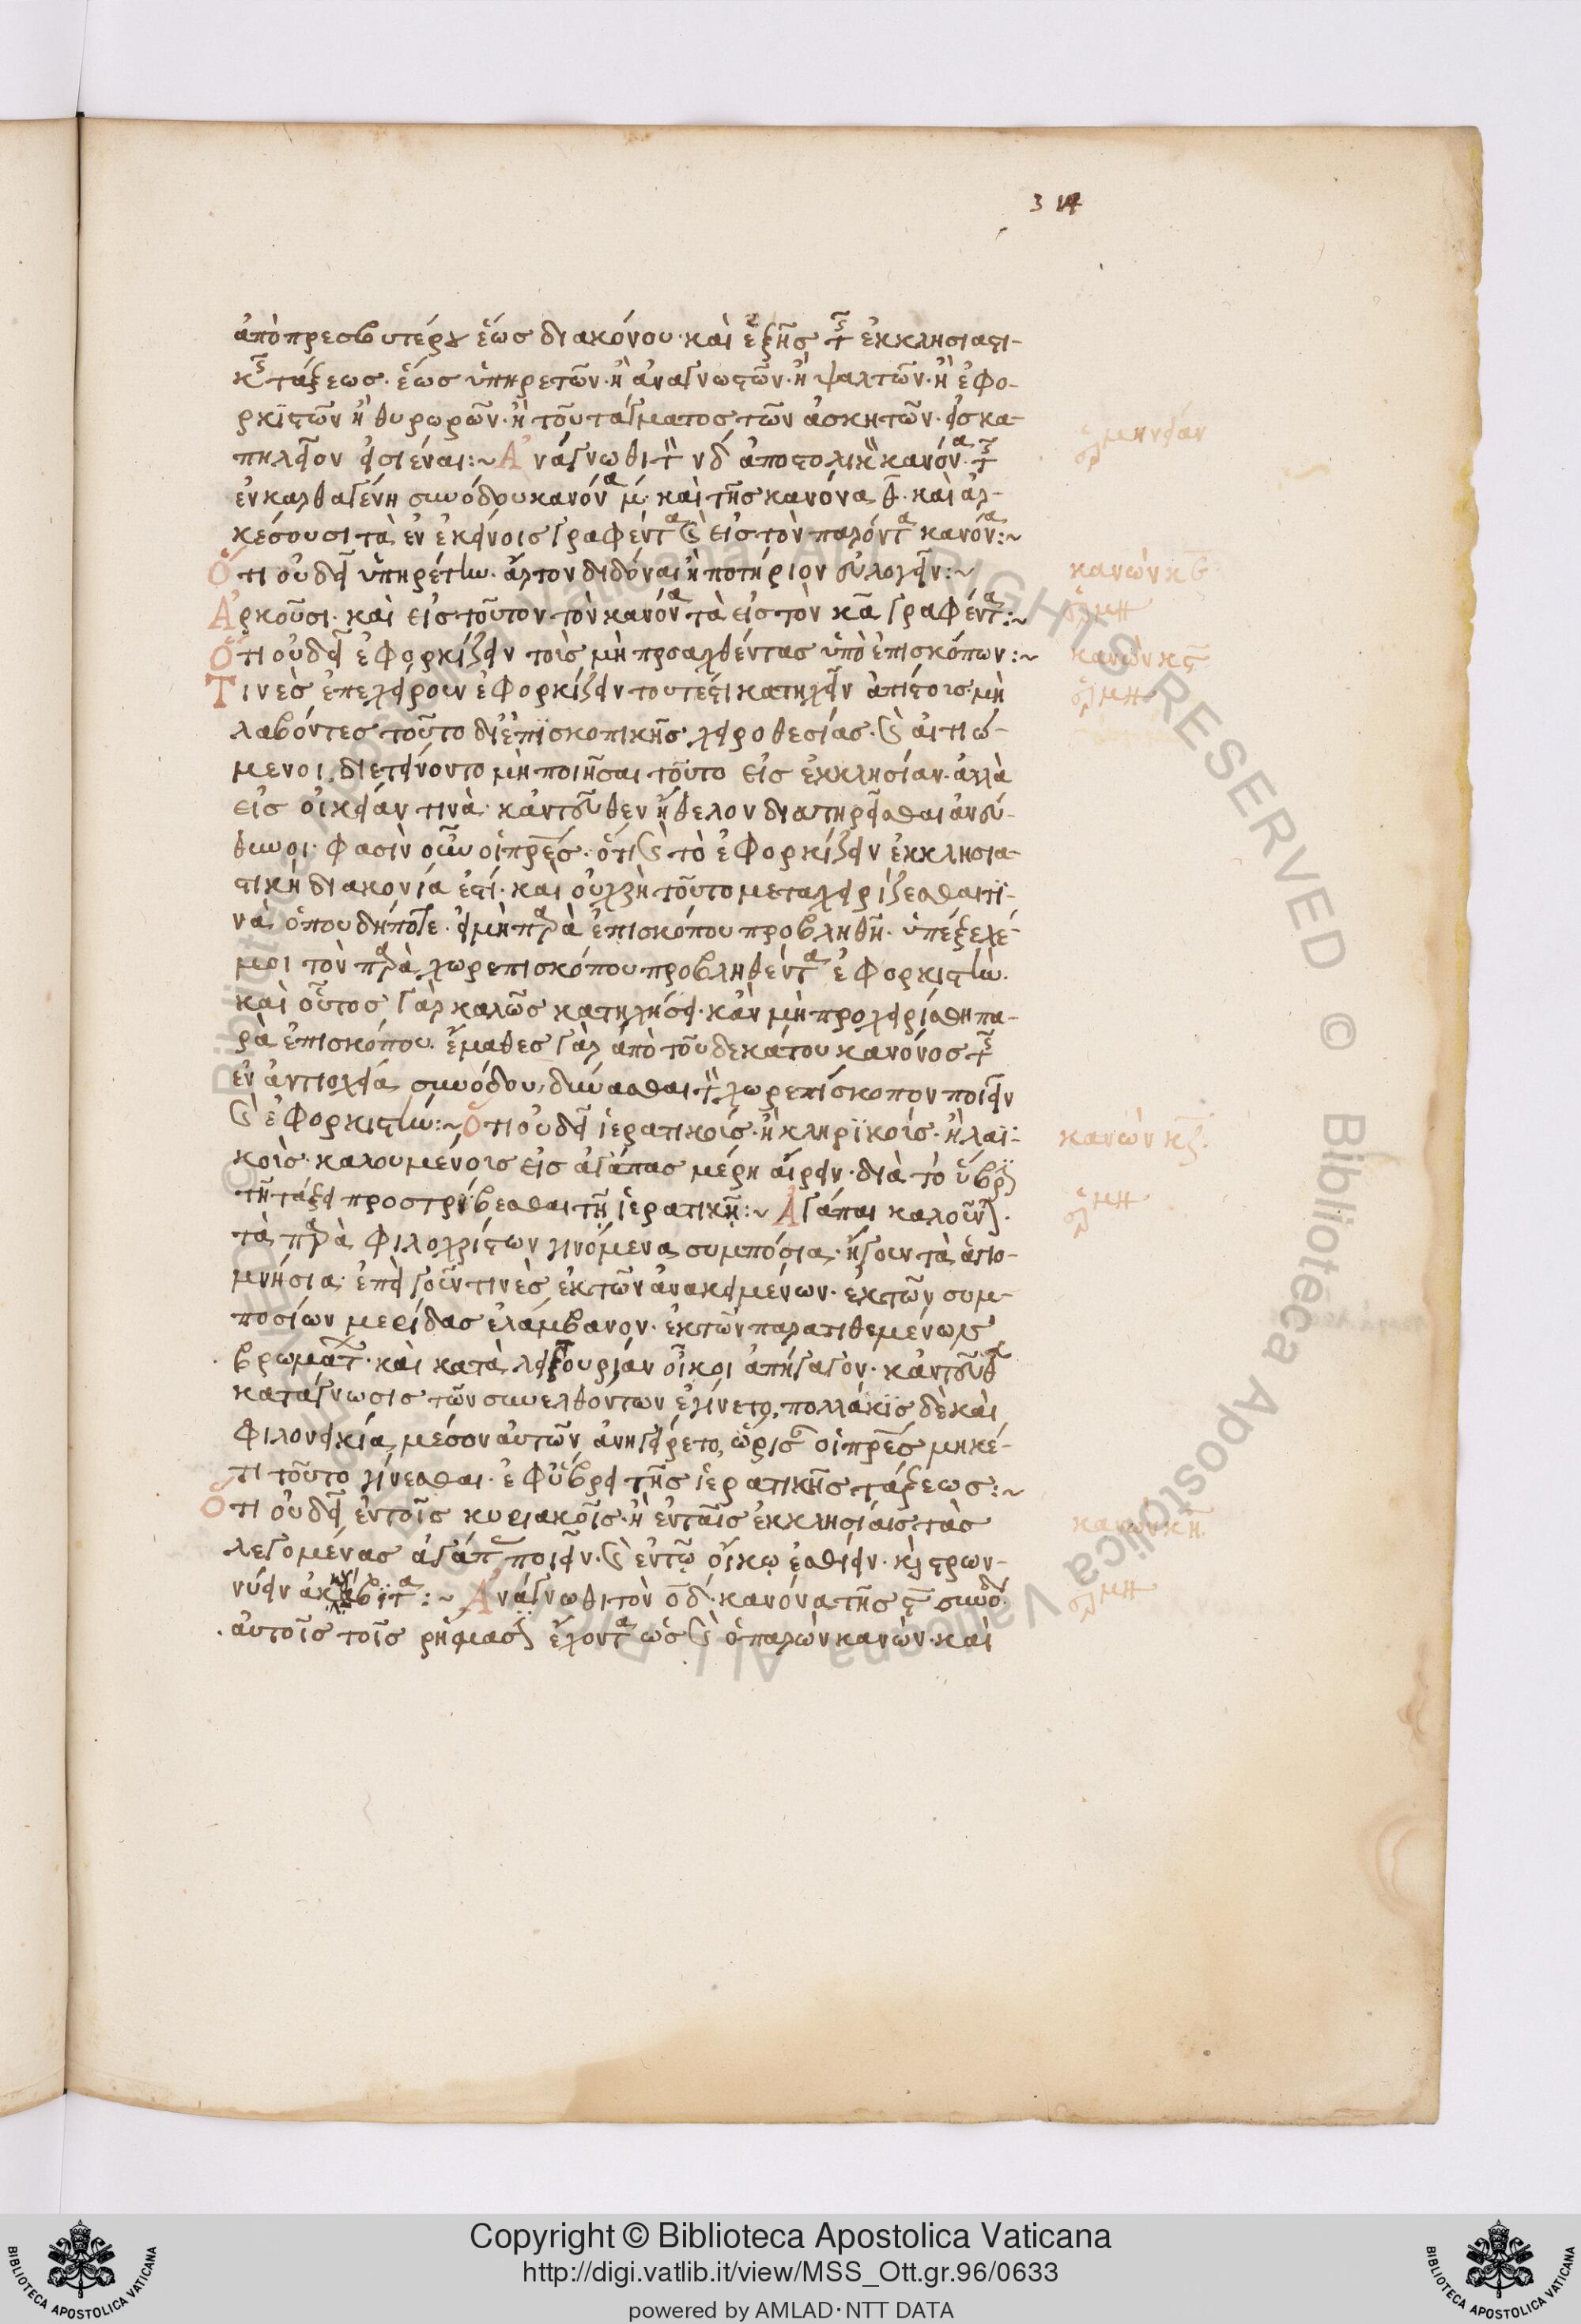 314
ἀπὸ πρεσβυτέρου ἕως διακόνου· καὶ ἑξῆς τῆς ἐκκλησιαστι-
κῆς τάξεως· ἕως ὑπηρετῶν· ἢ ἀναγνωστῶν· ἢ ψαλτῶν· ἢ ἐφο-
ρκιστῶν ἢ θυρωρῶν· ἢ τοῦ τάγματος τῶν ἀσκητῶν· εἰς κα-
πηλεῖον εἰσιέναι:~ Ἀνάγνωθι τὸν νδ ἀποστολικὸν κανόνα· τῆς
ἑρμηνείαν
ἐν καρθαγένη συνόδου κανόνα μ· καὶ τῆς κανόνα θ· καὶ ἀρ-
κέσουσι τὰ ἐν ἐκείνοις γραφέντα καὶ εἰς τὸν παρόντα κανόνα:~
Ὅτι οὐ δεῖ ὑπηρέτην· ἄρτον διδόναι ἢ ποτήριον εὐλογεῖν:~
κανὼν κε
Ἀρκοῦσι· καὶ εἰς τοῦτον τὸν κανόνα τὰ εἰς τὸν κα γραφέντα:~
ἑρμη
Ὅτι οὐ δεῖ ἐφορκίζειν τοὺς μὴ προαχθέντας ὑπὸ ἐπισκόπων:~
κανὼν κς
Τινὲς ἐπεχείρουν ἐφορκίζειν τουτέστι κατηχεῖν ἀπίστους· μὴ
ἑρμη
λαβόντες τοῦτο δι ἐπισκοπικῆς χειροθεσίας· καὶ αἰτιώ-
μενοι, διετείνοντο μὴ ποιῆσαι τοῦτο εἰς ἐκκλησίαν· ἀλλὰ
εἰς οἰκείαν τινὰ· κἀντεῦθεν ἤθελον διατηρεῖσθαι ἀνεύ-
θυνοι· φασὶν οὖν οἱ πρες· ὅτι καὶ τὸ ἐφορκίζειν ἐκκλησια-
στικὴ διακονία ἐστί· καὶ οὐ χρὴ τοῦτο μεταχειρίζεσθαι τι-
νὰ ὁπουδήποτε· εἰ μὴ παρὰ ἐπισκόπου προβληθῆ· ὑπέξελέ-
μοι τὸν παρὰ χωρεπισκόπου προβληθέντα ἐφορκιστὴν·
καὶ οὗτος γὰρ καλῶς κατηχήσει· κἂν μὴ προχειρίσθη πα-
ρὰ ἐπισκόπου· ἔμαθες γὰρ ἀπὸ τοῦ δεκάτου κανόνος τῆς
ἐν ἀντιοχεία συνόδου, δύνασθαι τὸν χωρεπίσκοπον ποιεῖν
καὶ ἐφορκιστὴν:~ Ὅτι οὐ δεῖ ἱερατικοῖς· ἢ κληρικοῖς· ἢ λαϊ-
κανὼν κζ·
κοῖς· καλουμένοις εἰς ἀγάπας μέρη αἴρειν· διὰ τὸ ὕβριν
τῆ τάξει προστρίβεσθαι τῆ ἱερατικῆ:~ Ἀγάπαι καλοῦνται·
ἑρμη
τὰ παρὰ φιλοχρίστων γινόμενα συμπόσια· ἤγουν τὰ ἁγιο-
μνήσια· ἐπεὶ γοῦν τινὲς ἐκ τῶν ἀνακειμένων· ἐκ τῶν συμ-
ποσίων μερίδας ἐλάμβανον· ἐκ τῶν παρατιθεμένων
βρωμάτων· καὶ κατὰ οἶκοι ἀπήγαγον· κἀντεῦθεν
κατάγνωσις τῶν συνελθόντων ἐγίνετο, πολλάκις δὲ καὶ
φιλονεικία μέσον αὐτῶν ἀνηγείρετο, ὥρισαν οἱ πρες μηκέ-
τι τοῦτο γίνεσθαι· ἐφύβρει τῆς ἱερατικῆς τάξεως:~
Ὅτι οὐ δεῖ ἐν τοῖς κυριακοῖς· ἢ ἐν ταῖς ἐκκλησίαις τὰς
κανὼν κη
λεγομένας ἀγάπας ποιεῖν· καὶ ἐν τῷ οἴκῳ ἐσθίειν· καὶ στρων-
νύειν ἀκούβιτα:~ Ἀνάγνωθι τὸν οδ· κανόνα τῆς ς συνόδου
ἑρμη
αὐτοῖς τοῖς ῥήμασιν ἔχοντα ὡς καὶ ὁ παρὼν κανών· καὶ
© Biblioteca Apostolica Vaticana ALL RIGHTS RESERVED
Copyright © Biblioteca Apostolica Vaticana
http://digi.vatlib.it/view/MSS_Ott.gr.96/0633
powered by AMLAD·NTT DATA
BIBLIOTECA APOSTOLICA VATICANA
BIBLIOTECA APOSTOLICA VATICANA